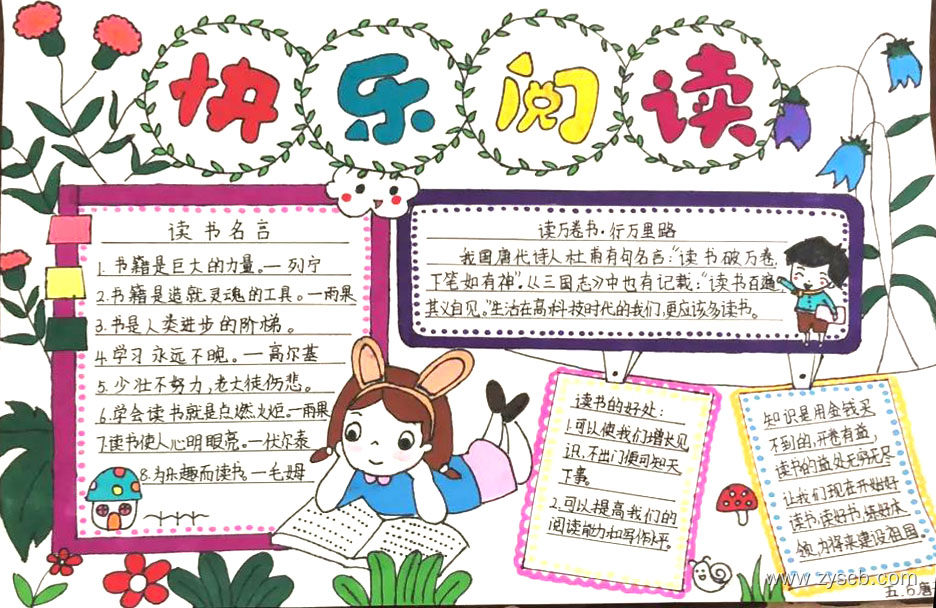 快乐阅读
读书名言
1.书籍是巨大的力量。一列宁
2.书籍是造就灵魂的工具。一雨果
3.书是人类进步的阶梯。
4.学习永远不晚。一高尔基
5.少壮不努力,老大徒伤悲。
6.学会读书就是点燃火炬.一雨果
7.读书使人心明眼亮。一伏尔泰
8.为乐趣而读书。一毛姆
读万卷书·行万里路
我国唐代诗人杜甫有句名言:“读书破万卷,
下笔如有神”.《三国志》中也有记载:“读书百遍
其义自见。”生活在高科技时代的我们,更应该多读书。
读书的好处:
1.可以使我们增长见
识,不出门便可知天
下事。
2.可以提高我们的
阅读能力和写作水平。
知识是用金钱买
不到的,开卷有益,
读书的益处无穷无尽
让我们现在开始好
读书,读好书,练好本
领,为将来建设祖国.
五.5唐
www.zyseb.com